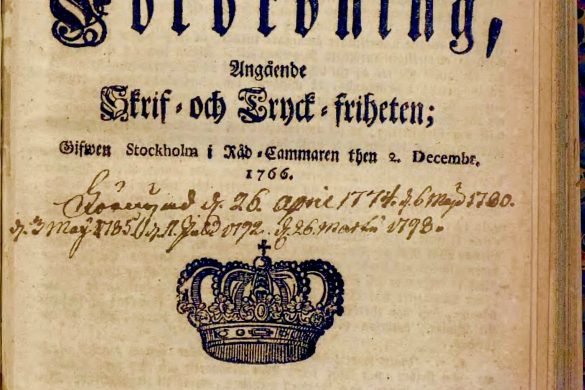 Förordning,
Angående
Skrif-och Tryck-friheten;
Gifwen Stockholm i Råd-Cammaren then 2. Decembr.
1766.
d. 26. april 1774. d. 6 Maji 1780.
d. 3 Maji 1785. d. 11. Julii 1792. d. 26. Martii 1798.